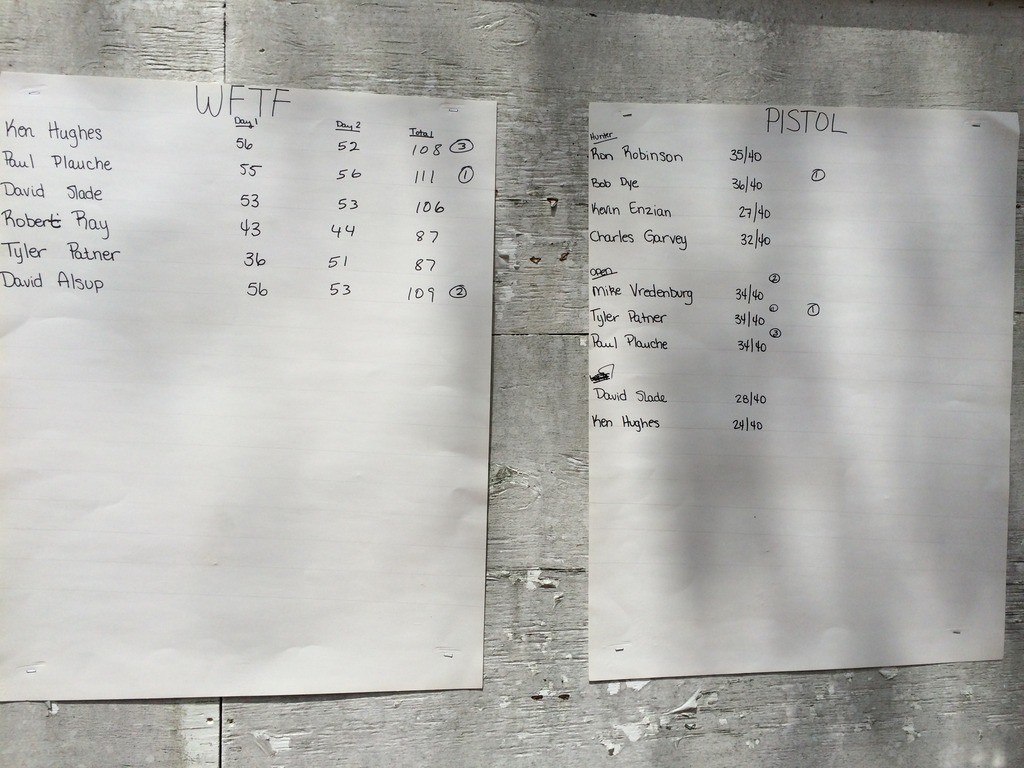 WFTF
Day 1 Day 2 Total
Ken Hughes 56 52 108 ③
Paul Plauche 55 56 111 ①
David Slade 53 53 106
Robert Ray 43 44 87
Tyler Patner 36 51 87
David Alsup 56 53 109 ②
PISTOL
Hunter
Ron Robinson 35/40
Bob Dye 36/40 ①
Kevin Enzian 27/40
Charles Garvey 32/40
Open
Mike Vredenburg 34/40 ②
Tyler Patner 34/40 ① ①
Paul Plauche 34/40 ③
David Slade 28/40
Ken Hughes 24/40